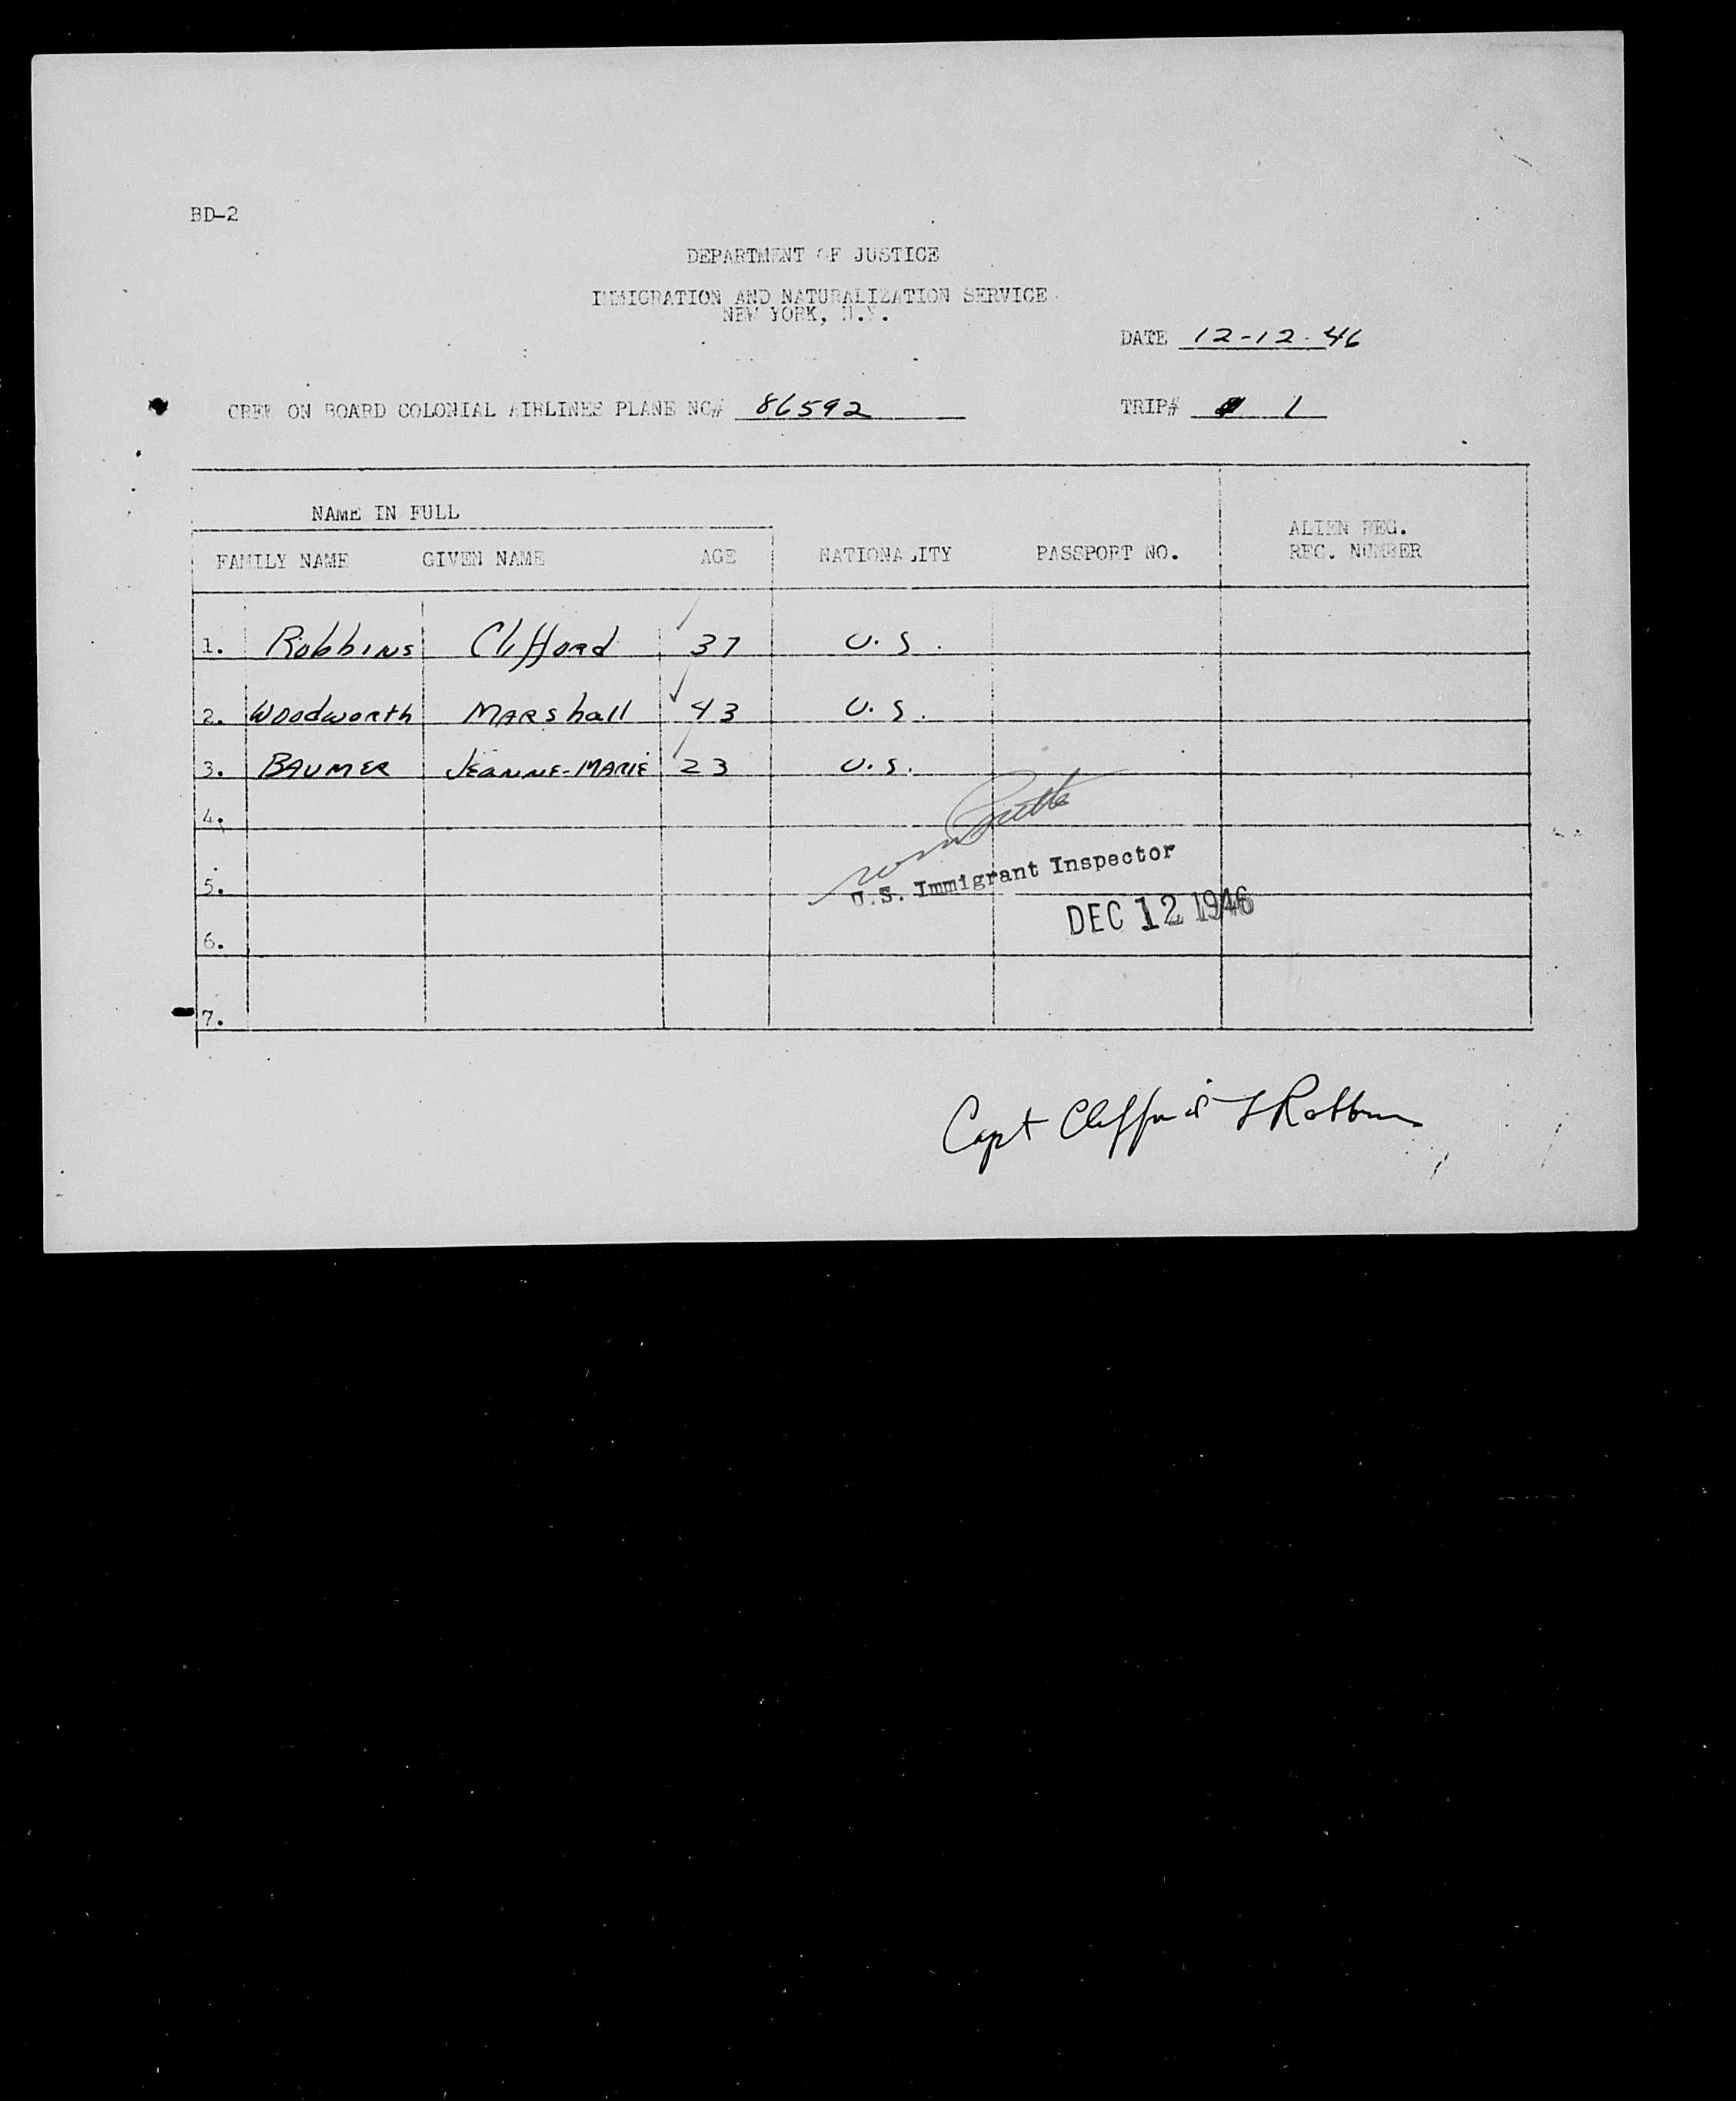 BD-2
DEPARTMENT OF JUSTICE
IMMIGRATION AND NATURALIZATION SERVICE
NEW YORK, N.Y.
DATE 12-12-46
CREW ON BOARD COLONIAL AIRLINES PLANE NC# 86592 TRIP# 1
NAME IN FULL
FAMILY NAME GIVEN NAME AGE NATIONALITY PASSPORT NO. ALIEN REG. REC. NUMBER
1. Robbins Clifford 37 U.S.
2. Woodworth MARShall 43 U.S.
3. BAUMER JEANNE-MARIE 23 U.S.
4.
5.
U.S. Immigrant Inspector
DEC 12 1946
6.
7.
Capt Clifford L Robbins